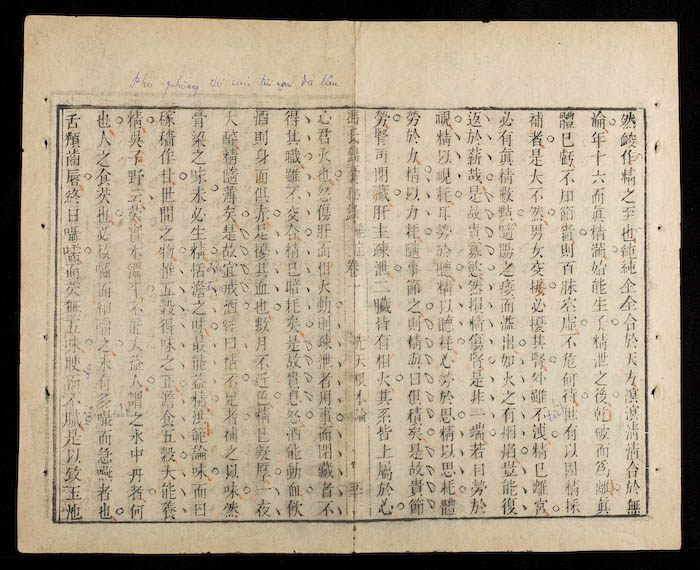 然峻作精之至也純純全全合於天方溟溟清清合於無
淪年十六而眞精滿始能生子精泄之後乾破而爲離眞
體已虧不知節嗇則百脉空虛不危何待世有以固精採
補者是大不然男女交接必擾其腎外雖不洩精已離宮
必有眞精數點隨陽之痿而溢出如火之有烟焰豈能復
返於薪哉是故貴寡慾然損精傷腎是非一端若目勞於
視精以視耗耳勞於聽精以聽耗心勞於思精以思耗體
勞於力精以力耗隨事節之則精與日俱積矣是故貴節
勞腎司閉藏肝主疎泄二臟皆有相火其系皆上屬於心
馮氏錦囊秘錄 雜症 卷一 先天根本論
心君火也怒傷肝而相火動則疎泄者用事而閉藏者不
得其職雖不交合精已暗耗矣是故貴息怒酒能動血飲
酒則身面俱赤是擾其血也數月不近色精已凝厚一夜
大醉精隨薄矣是故宜戒酒經曰精不足者補之以味然
膏粱之味未必生精恬澹之味最能益精洪範論味而曰
稼穡作甘世間之物惟五穀得味之正澹食五穀大能養
精吳子野云芡實本溫平不能大益人謂之水中丹者何
也人之食芡也必枚嚙而細嚼之未有多嘬而急嚥者也
舌頰齒唇終日囁嚅而芡無五味腴而不膩是以致玉池